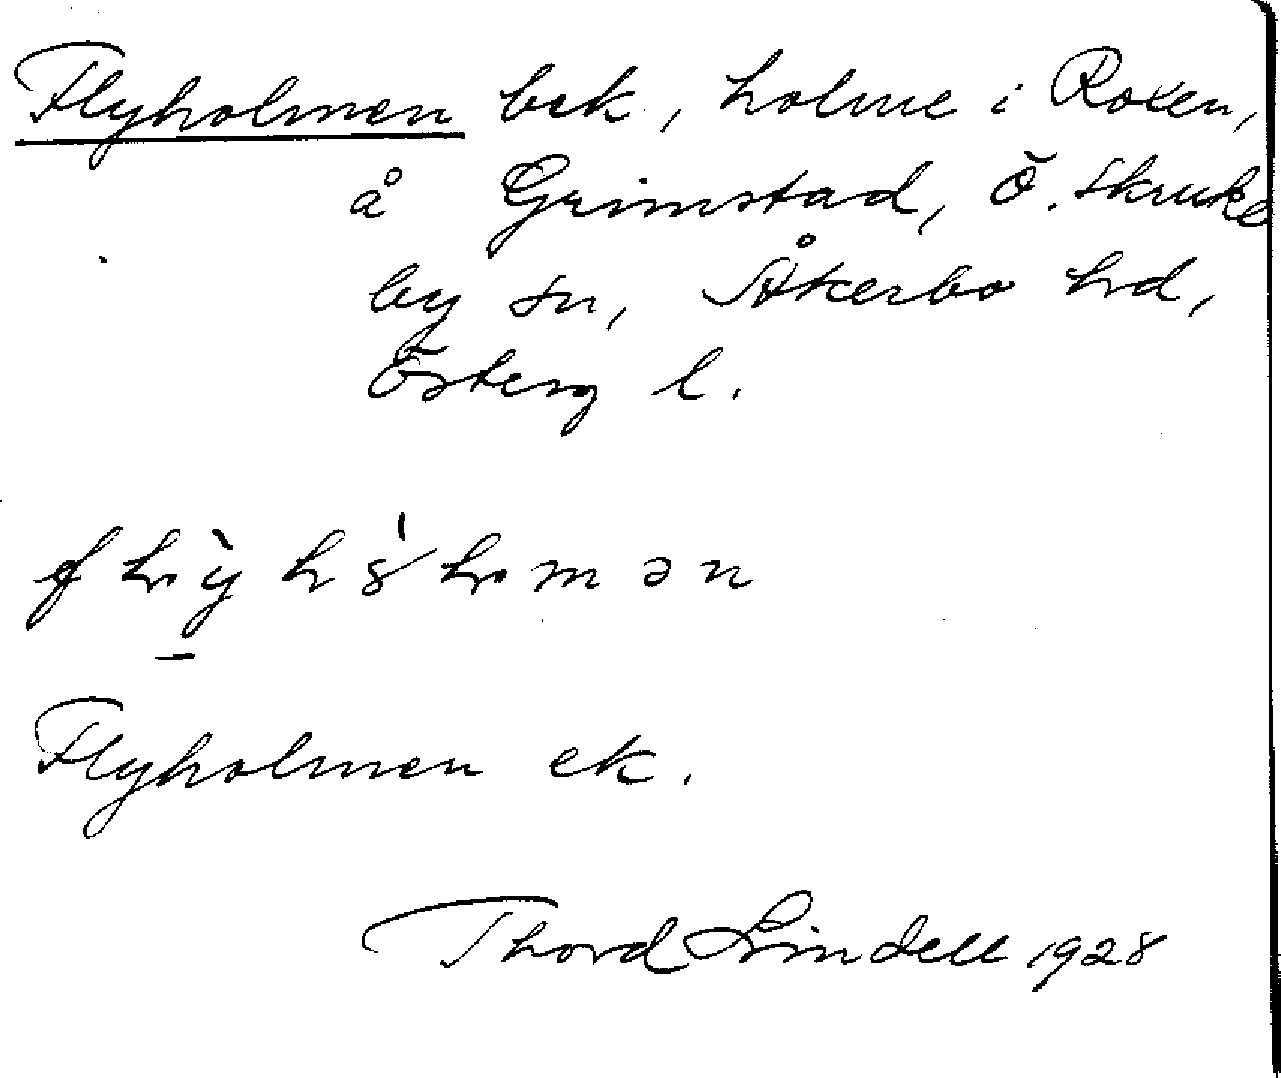 Flyholmen bek, holme i Roxen,
å Grimstad, Ö. Skruke
by sn, Åkerbo hrd,
Österg l.
Flyholmen ek.
Thord Lindell 1928